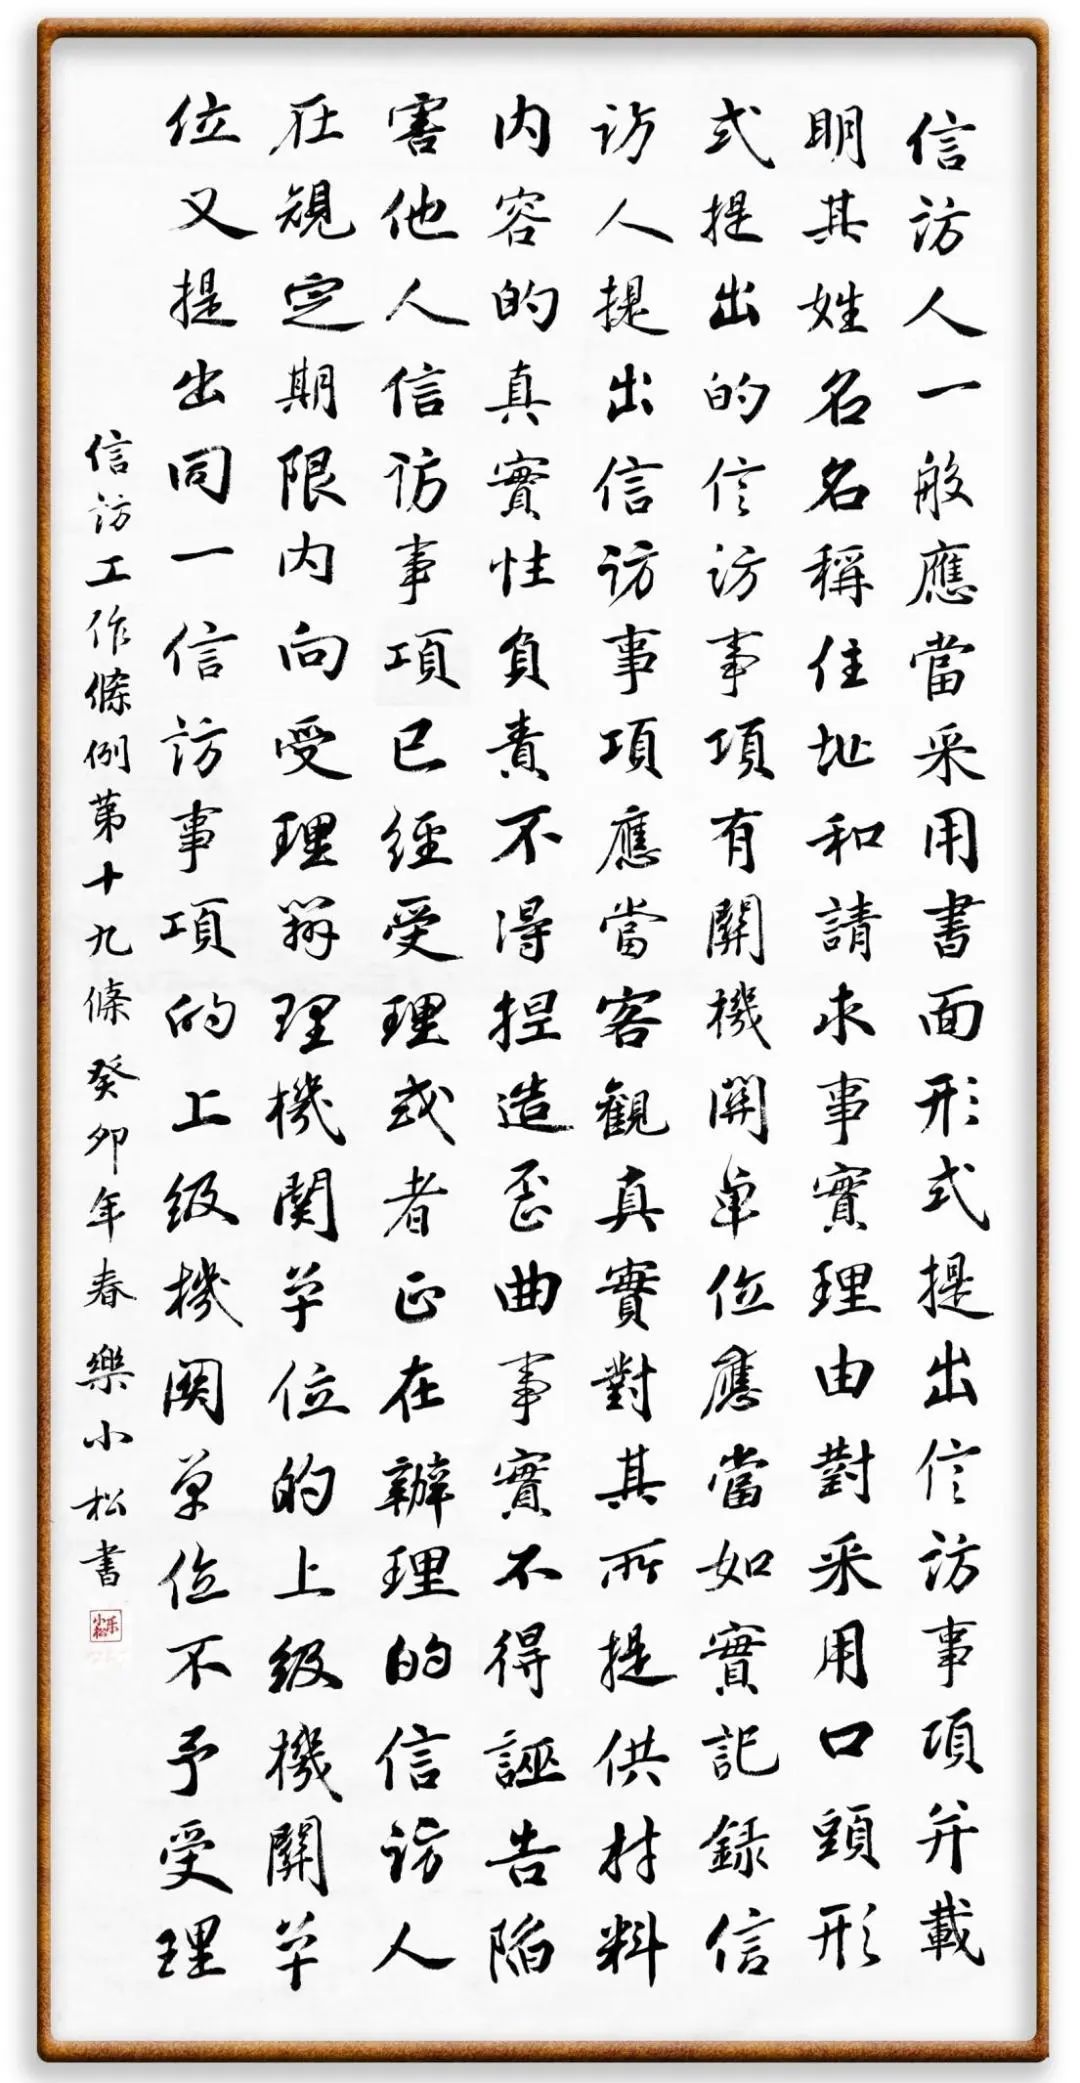 信訪人一般應當采用書面形式提出信訪事項并載
明其姓名名稱住址和請求事實理由對采用口頭形
式提出的信訪事項有關機關單位應當如實記錄信
訪人提出信訪事項應當客觀真實對其所提供材料
内容的真實性負責不得捏造歪曲事實不得誣告陷
害他人信訪事項已經受理或者正在辦理的信訪人
在規定期限内向受理辦理機関单位的上级機關单
位又提出同一信訪事項的上级機関单位不予受理
信訪工作條例第十九條癸卯年春樂小松書
乐小松